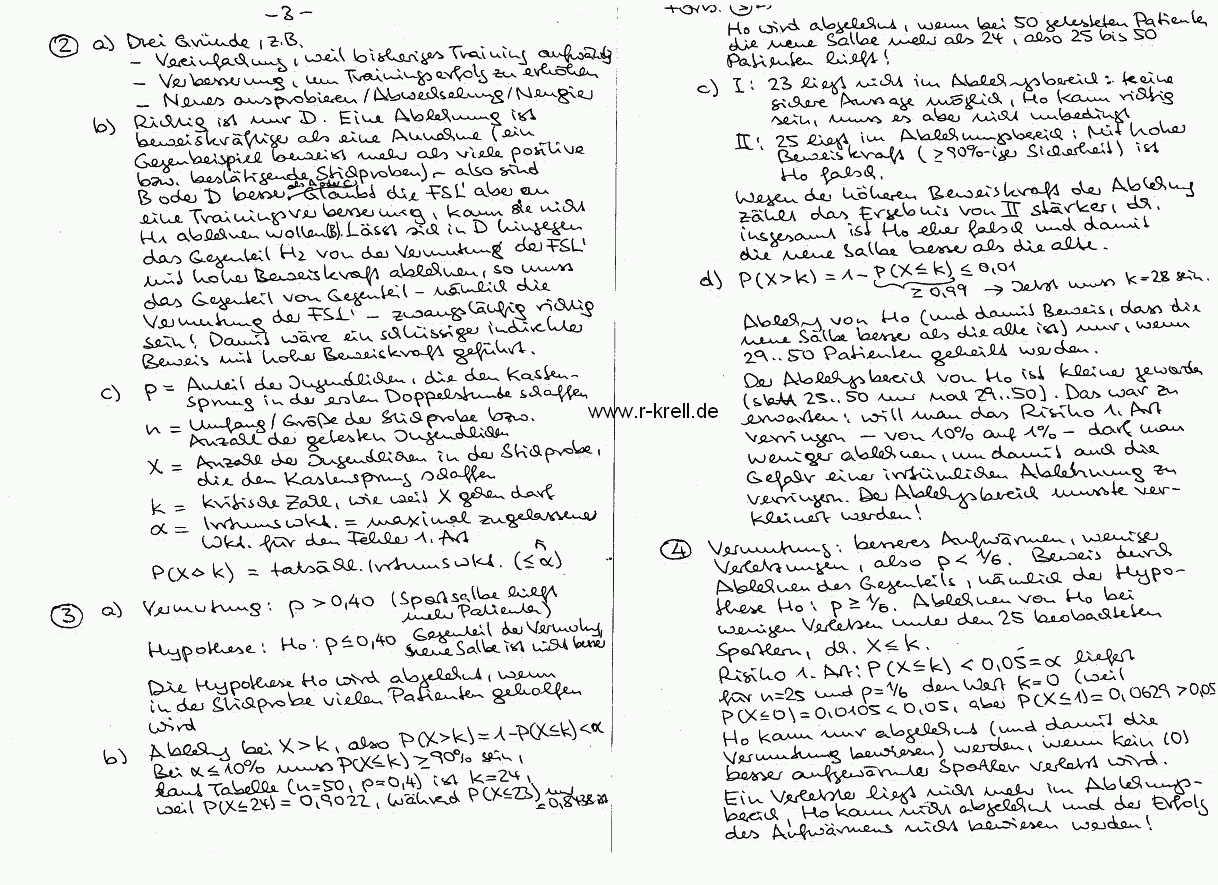 -3-
② a) Drei Gründe, z.B.
- Vereinfachung, weil bisheriges Training aufwändig
- Verbesserung, um Trainingserfolg zu erhöhen
- Neues ausprobieren/Abwechselung/Neugier
b) Richtig ist nur D. Eine Ablehnung ist
beweiskräftiger als eine Annahme (ein
Gegenbeispiel beweist mehr als viele positive
bzw. bestätigende Stichproben) - also sind
B oder D besser. Glaubt die FSL' aber an
eine Trainingsverbesserung, kann sie nicht
H1 ablehnen wollen (B). Lässt sich in D hingegen
das Gegenteil H2 von der Vermutung der FSL'
mit hoher Beweiskraft ablehnen, so muss
das Gegenteil vom Gegenteil - nämlich die
Vermutung der FSL' - zwangsläufig richtig
sein! Damit wäre ein schlüssiger indirekter
Beweis mit hoher Beweiskraft geführt.
c) p = Anteil der Jugendlichen, die den Kasten-
sprung in der ersten Doppelstunde schaffen
n = Umfang/Größe der Stichprobe bzw.
Anzahl der getesten Jugendlichen
X = Anzahl der Jugendlichen in der Stichprobe,
die den Kastensprung schaffen
k = kritische Zahl, wie weit X gehen darf
α = Irrtumswkt. = maximal zugelassene
Wkt. für den Fehler 1. Art
P(X△k) = tatsächl. Irrtumswkt. (≤α)
③ a) Vermutung: p > 0,40 (Sportsalbe hilft
mehr Patienten)
Hypothese: Ho: p≤0,40 Gegenteil der Vermutung
neue Salbe ist nicht besser
Die Hypothese Ho wird abgelehnt, wenn
in der Stichprobe vielen Patienten geholfen
wird
b) Ablehng bei X>k, also P(X>k)=1-P(X≤k)<α
Bei α≤10% muss P(X≤k)≥90% sein,
laut Tabelle (n=50, p=0,4) ist k=24,
weil P(X≤24)=0,9022, während P(X≤23) nur
=0,8438 ist
www.r-krell.de
Forts. ③
Ho wird abgelehnt, wenn bei 50 getesteten Patienten
die neue Salbe mehr als 24, also 25 bis 50
Patienten hilft!
c) I: 23 liegt nicht im Ablehngsbereich: keine
sichere Aussage möglich, Ho kann richtig
sein, muss es aber nicht unbedingt
II: 25 liegt im Ablehnungsbereich: Mit hoher
Beweiskraft (≥90%-iger Sicherheit) ist
Ho falsch.
Wegen der höheren Beweiskraft der Ablehnung
zählt das Ergebnis von II stärker, dh.
insgesamt ist Ho eher falsch und damit
die neue Salbe besser als die alte.
d) P(X>k) = 1-P(X≤k) ≤ 0,01
≥ 0,99 → Jetzt muss k=28 sein.
Ablehng von Ho (und damit Beweis, dass die
neue Salbe besser als die alte ist) nur, wenn
29..50 Patienten geheilt werden.
Der Ablehngsbereich von Ho ist kleiner geworden
(statt 25..50 nur mal 29..50). Das war zu
erwarten: will man das Risiko 1. Art
verringern - von 10% auf 1% - darf man
weniger ablehnen, um damit auch die
Gefahr einer irrtümlichen Ablehnung zu
verringern. Der Ablehngsbereich musste ver-
kleinert werden!
④ Vermutung: besseres Aufwärmen, weniger
Verletzungen, also p < 1/6. Beweis durch
Ablehnen des Gegenteils, nämlich der Hypo-
these Ho: p ≥ 1/6. Ablehnen von Ho bei
wenigen Verletzten unter den 25 beobachteten
Sportlern, dh. X≤k.
Risiko 1. Art: P(X≤k) < 0,05=α liefert
für n=25 und p=1/6 den Wert k=0 (weil
P(X≤0)=0,0105<0,05, aber P(X≤1)=0,0629>0,05
Ho kann nur abgelehnt (und damit die
Vermutung bewiesen) werden, wenn kein (0)
besser aufgewärmter Sportler verletzt wird.
Ein Verletzter liegt nicht mehr im Ablehnungs-
bereich, Ho kann nicht abgelehnt und der Erfolg
des Aufwärmens nicht bewiesen werden!